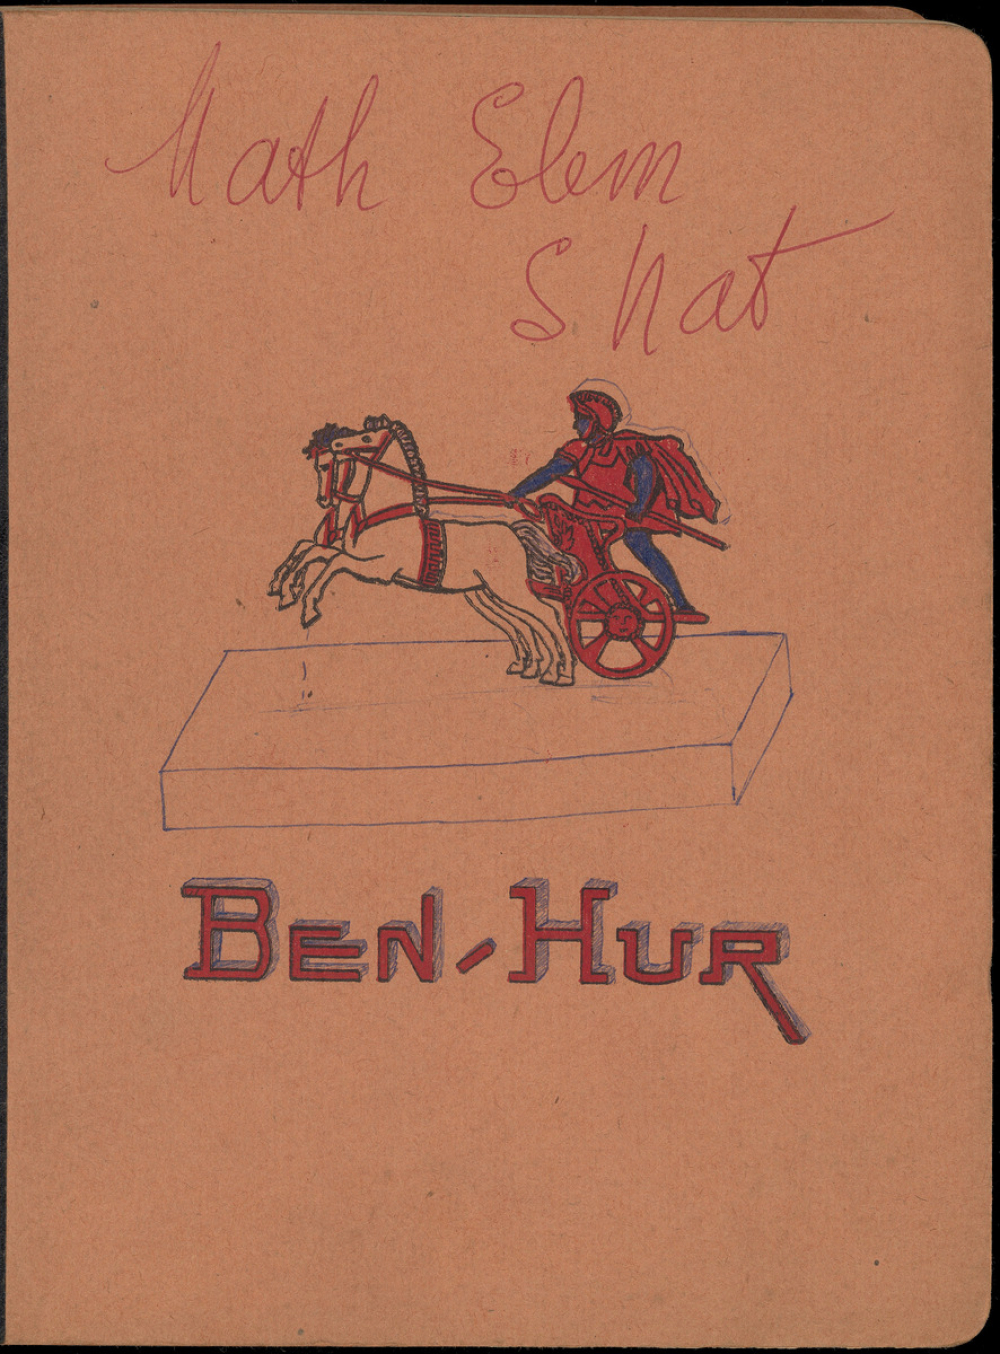 Math Elem
S Nat
BEN-HUR